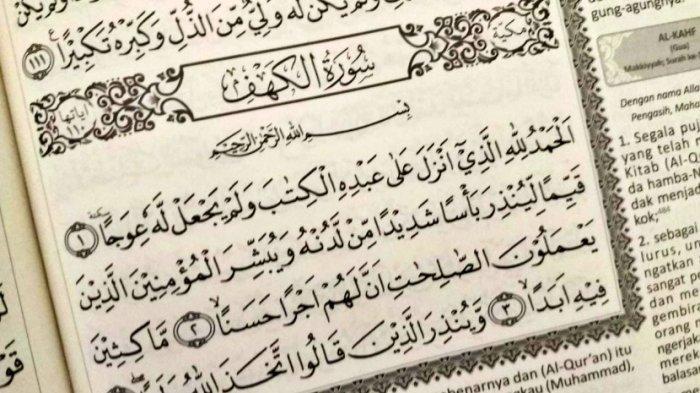 وَلَمْ يَكُنْ لَّهٗ وَلِيٌّ مِّنَ الذُّلِّ وَكَبِّرْهُ تَكْبِيْرًا ࣖ ١١١
مكية
سُوْرَةُ الْكَهْفِ
اٰياتها ١١٠
بِسْمِ اللّٰهِ الرَّحْمٰنِ الرَّحِيْمِ
اَلْحَمْدُ لِلّٰهِ الَّذِيْٓ اَنْزَلَ عَلٰى عَبْدِهِ الْكِتٰبَ وَلَمْ يَجْعَلْ لَّهٗ عِوَجًا ۜ ١
قَيِّمًا لِّيُنْذِرَ بَأْسًا شَدِيْدًا مِّنْ لَّدُنْهُ وَيُبَشِّرَ الْمُؤْمِنِيْنَ الَّذِيْنَ
يَعْمَلُوْنَ الصّٰلِحٰتِ اَنَّ لَهُمْ اَجْرًا حَسَنًاۙ ٢ مَّاكِثِيْنَ
فِيْهِ اَبَدًاۙ ٣ وَّيُنْذِرَ الَّذِيْنَ قَالُوا اتَّخَذَ اللّٰهُ
gung-agungnya.
AL-KAHF
(Gua)
Makkiyyah; Surah ke-
Dengan nama Alla
Pengasih, Maha
1. Segala puj
yang telah m
Kitab (Al-Q
da hamba-N
dak menjad
kok;
2. sebagai
lurus, u
ngatkan
sangat p
dan me
gembira
orang
ngerjak
mereka
balasan
benarnya dan (Al-Qur'an) itu
gkau (Muhammad),